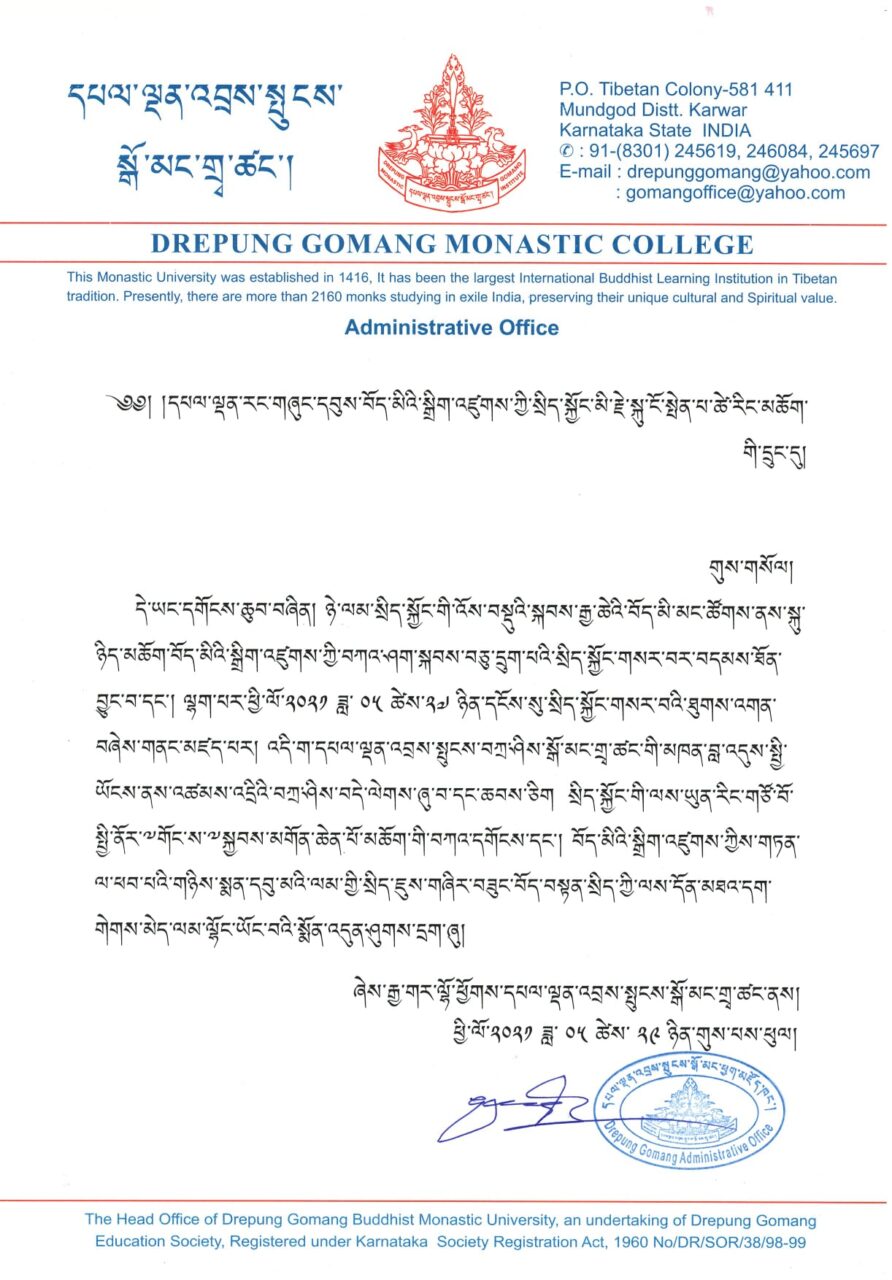 དཔལ་ལྡན་འབྲས་སྤུངས་
སྒོ་མང་གྲྭ་ཚང་།
DREPUNG GOMANG
MONASTIC INSTITUTE
དཔལ་ལྡན་འབྲས་སྤུངས་སྒོ་མང་གྲྭ་ཚང་།
P.O. Tibetan Colony-581 411
Mundgod Distt. Karwar
Karnataka State INDIA
✆ : 91-(8301) 245619, 246084, 245697
E-mail : drepunggomang@yahoo.com
: gomangoffice@yahoo.com
DREPUNG GOMANG MONASTIC COLLEGE
This Monastic University was established in 1416, It has been the largest International Buddhist Learning Institution in Tibetan
tradition. Presently, there are more than 2160 monks studying in exile India, preserving their unique cultural and Spiritual value.
Administrative Office
༄༅། །དཔལ་ལྡན་རང་གཞུང་དབུས་བོད་མིའི་སྒྲིག་འཛུགས་ཀྱི་སྲིད་སྐྱོང་མི་རྗེ་སྐུ་ངོ་སྤེན་པ་ཚེ་རིང་མཆོག་
གི་དྲུང་དུ།
གུས་གསོལ།
དེ་ཡང་དགོངས་ཆུབ་བཞིན། ཉེ་ལམ་སྲིད་སྐྱོང་གི་འོས་བསྡུའི་སྐབས་རྒྱ་ཆེའི་བོད་མི་མང་ཚོགས་ནས་སྐུ་
ཉིད་མཆོག་བོད་མིའི་སྒྲིག་འཛུགས་ཀྱི་བཀའ་ཤག་སྐབས་བཅུ་དྲུག་པའི་སྲིད་སྐྱོང་གསར་བར་བདམས་ཐོན་
བྱུང་བ་དང་། ལྷག་པར་ཕྱི་ལོ་༢༠༢༡ ཟླ་ ༠༥ ཚེས་༢༧ ཉིན་དངོས་སུ་སྲིད་སྐྱོང་གསར་བའི་ཐུགས་འགན་
བཞེས་གནང་མཛད་པར། འདི་ག་དཔལ་ལྡན་འབྲས་སྤུངས་བཀྲ་ཤིས་སྒོ་མང་གྲྭ་ཚང་གི་མཁན་བླ་འདུས་སྤྱི་
ཡོངས་ནས་འཚམས་འདྲིའི་བཀྲ་ཤིས་བདེ་ལེགས་ཞུ་བ་དང་ཆབས་ཅིག སྲིད་སྐྱོང་གི་ལས་ཡུན་རིང་གཙོ་བོ་
སྤྱི་ནོར་༧གོང་ས་༧སྐྱབས་མགོན་ཆེན་པོ་མཆོག་གི་བཀའ་དགོངས་དང་། བོད་མིའི་སྒྲིག་འཛུགས་ཀྱིས་གཏན་
ལ་ཕབ་པའི་གཉིས་སྨན་དབུ་མའི་ལམ་གྱི་སྲིད་ཇུས་གཞིར་བཟུང་བོད་བསྟན་སྲིད་ཀྱི་ལས་དོན་མཐའ་དག་
གེགས་མེད་ལམ་ལྷོང་ཡོང་བའི་སྨོན་འདུན་ཤུགས་དྲག་ཞུ།
ཞེས་རྒྱ་གར་ལྷོ་ཕྱོགས་དཔལ་ལྡན་འབྲས་སྤུངས་སྒོ་མང་གྲྭ་ཚང་ནས།
ཕྱི་ལོ་༢༠༢༡ ཟླ་ ༠༥ ཚེས་ ༢༩ ཉིན་གུས་པས་ཕུལ།
དཔལ་ལྡན་འབྲས་སྤུངས་སྒོ་མང་ཕྱག་མཛོད་ཁང་།
Drepung Gomang Administrative Office
The Head Office of Drepung Gomang Buddhist Monastic University, an undertaking of Drepung Gomang
Education Society, Registered under Karnataka Society Registration Act, 1960 No/DR/SOR/38/98-99